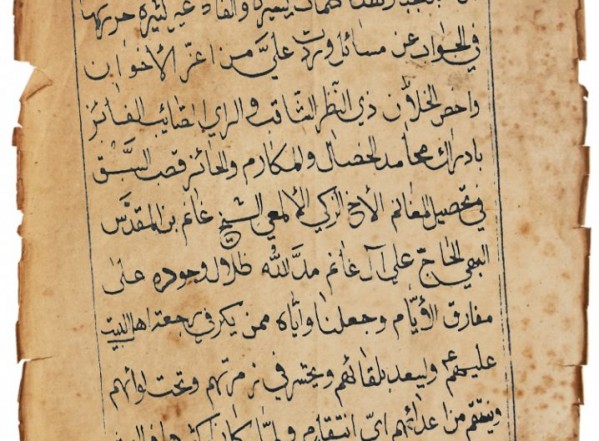 كلمات يسيرة وألفاظ غير كثيرة حررتها
في الجواب عن مسائل وردت عليَّ من اعز الأخوان
واخص الخلان ذي النظر الثاقب والراي الصائب الفائز
بادراك محامد الخصال والمكارم والحائز قصب السَّبق
في تحصيل المغانم الأخ الزكي الألمعي الشيخ غانم بن المقدَّس
البهي الحاجّ علي آل غانم مدَّ الله ظلال وجوده على
مفارق الأيَّام وجعلنا وآياه ممن يكر في رجعة اهل البيت
عليهم عم ويسعد بلقائهم ويحشر في زمرتهم وتحت لوائهم
وينتقم من اعدائهم ايّ انتقام ولمّا كان